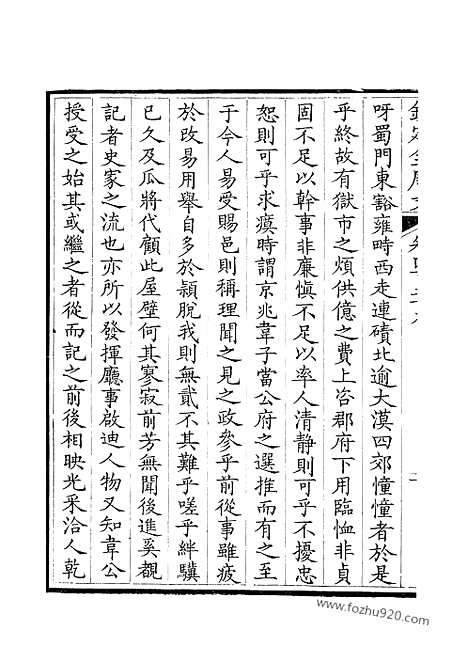 呀蜀門東豁雍畤西走連磧北逾大漠四郊憧憧者於是
乎終故有獄市之煩供億之費上咨郡府下用臨恤非貞
固不足以幹事非廉慎不足以率人清静則可乎不擾忠
恕則可乎求瘼時謂京兆韋子當公府之選推而有之至
于今人易受賜邑則稱理聞之見之政參乎前從事雖疲
於改易用舉自多於頴脫我則無貳不其難乎嗟乎絆驥
已久及瓜將代顧此屋壁何其寥寂前芳無聞後進奚覩
記者史家之流也亦所以發揮廳事啟迪人物又知韋公
授受之始其或繼之者從而記之前後相映光采洽人乾
www.fozhu920.com